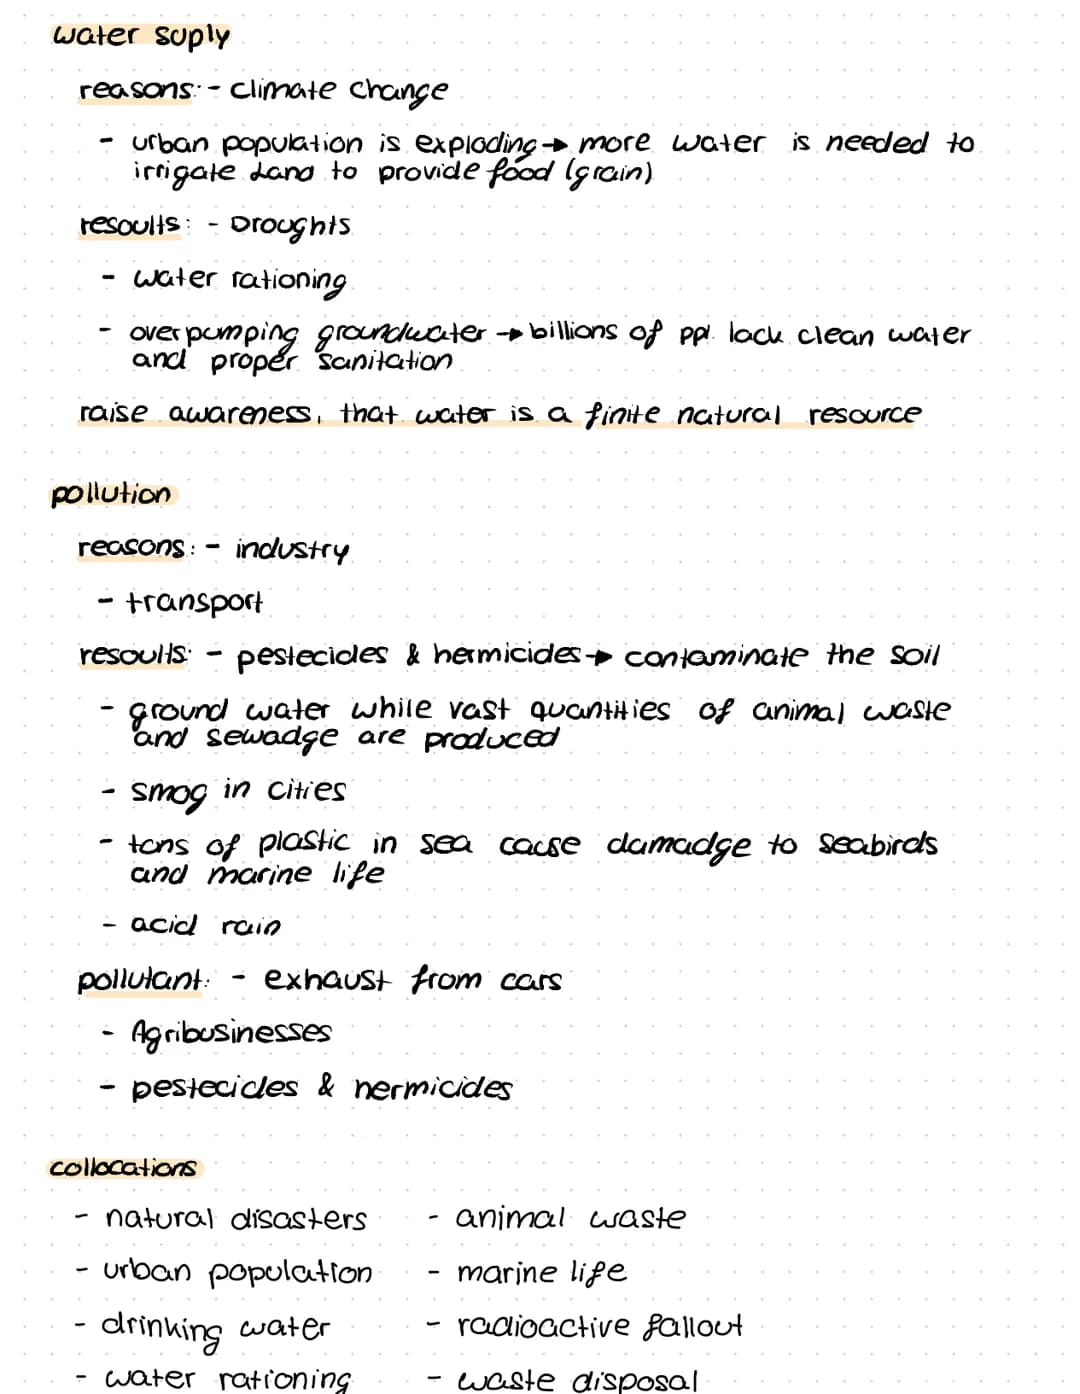 water suply
reasons: - climate change
- urban population is exploding → more water is needed to
irrigate land to provide food (grain)
resoults: - Droughts
- water rationing
- overpumping groundwater → billions of ppl. lack clean water
and proper sanitation
raise awareness, that water is a finite natural resource
pollution
reasons: - industry
- transport
resoults: - pestecides & hermicides → contaminate the soil
- ground water while vast quantities of animal waste
and sewadge are produced
- smog in cities
- tons of plastic in sea cause damadge to seabirds
and marine life
- acid rain
pollutant: - exhaust from cars
- Agribusinesses
- pestecides & hermicides
collocations
- natural disasters - animal waste
- urban population - marine life
- drinking water - radioactive fallout
- water rationing - waste disposal